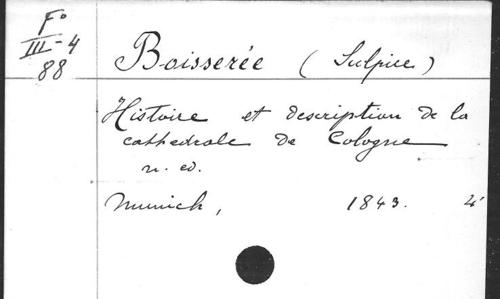 Fº
III-4
88
Boisserée (Sulpice)
Histoire et description de la
cathedrale de Cologne
n. ed.
Munich, 1843. 4'